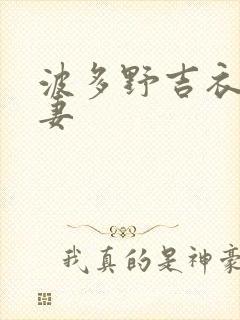 波多野吉衣
妻
我真的是神豪